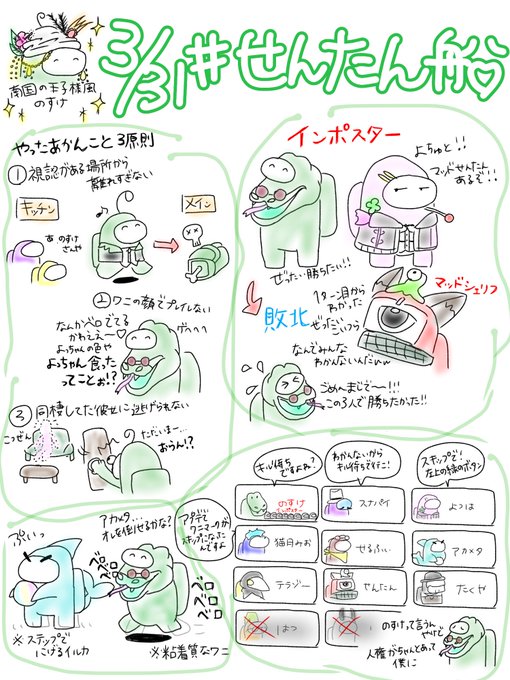 南国の王子様風
のすけ
3/31#せんたん船
やったあかんこと3原則
①視認がある場所から
離れすぎない
キッチン
メイン
あ のすけ
さんや
②ワニの顔でプレイしない
なんかベロでてる
かわええ〜♡
よっちゃんの色や
よっちゃん食った
ってことぉ!?
グヘヘ
③同棲してた彼女に逃げられない
こつぜん
ただいまー…
おらん!?
インポスター
よちゅと!!
マッドせんたん
あるぞ!!
ぜったい勝ちたい!!
マッドシェリフ
敗北
1ターン目から
わかった
ぜったいこいつら
なんでみんな
わかんないんだいw
うめへまじでー!!!
この3人で勝ちたかった!!
ぷいっ
アカメタ…
オレを倒せるかな?
ベロベロ
ベロベロベロ
※ステップで
にげるイルカ
※粘着質なワニ
アプデで
ワニキラーが
ステップになったん
ですよ
キル待ち
ですよね?
わかんないから
キル待ちで行こ!
スキップで!
左上の緑のボタン
のすけ
インポスター
スナパイ
よつは
猫月みお
せるふぃー
アカメタ
テラゾー
せんたん
たくや
はつ
のすけって言うん
やけど
人権がちゃんとあって
僕に